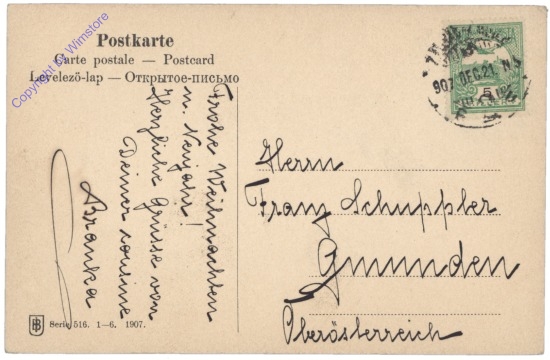 Postkarte
Carte postale — Postcard
Levelezö-lap — Открытое-письмо
Copyright by Wimstore
907 DEC. 21.
5
Frohe Weihnachten
u. Neujahr!
Herzliche Grüsse von
Deiner cousine
Branka
Herrn
Franz Schuppler
Gmunden
Oberösterreich
Serie 516. 1—6. 1907.